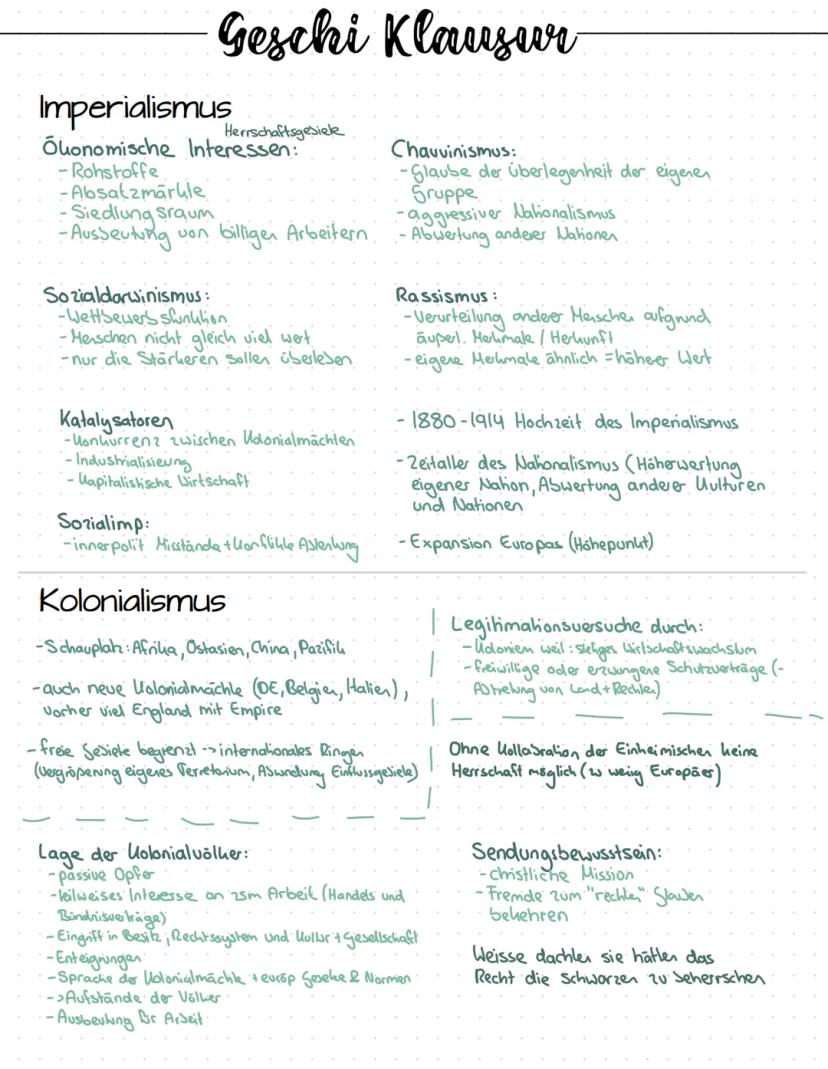 Geschi Klausur
Imperialismus
Herrschaftsgebiete
Ökonomische Interessen:
- Rohstoffe
- Absatzmärkte
- Siedlungsraum
- Ausbeutung von billigen Arbeitern
Chauvinismus:
- Glaube der Überlegenheit der eigenen
Gruppe
- aggressiver Nationalismus
- Abwertung anderer Nationen
Sozialdarwinismus:
- Wettbewerbsfunktion
- Menschen nicht gleich viel wert
- nur die Stärkeren sollen überleben
Rassismus:
- Verurteilung anderer Menschen aufgrund
äußerl. Merkmale / Herkunft
- eigene Merkmale ähnlich = höherer Wert
Katalysatoren
- Konkurrenz zwischen Kolonialmächten
- Industrialisierung
- Kapitalistische Wirtschaft
Sozialimp:
- innerpolit Missstände + Konflikte Ablenkung
- 1880-1914 Hochzeit des Imperialismus
- Zeitaller des Nationalismus (Höherwertung
eigener Nation, Abwertung anderer Kulturen
und Nationen
- Expansion Europas (Höhepunkt)
Kolonialismus
- Schauplatz: Afrika, Ostasien, China, Pazifik
- auch neue Kolonialmächte (DE, Belgien, Italien),
vorher viel England mit Empire
- freie Gebiete begrenzt -> internationales Ringen
(Vergrößerung eigenes Terretorium, Abwendung Einflussgebiete)
Legitimationsversuche durch:
- Kolonien weil: stetiges Wirtschaftswachstum
- freiwillige oder erzwungene Schutzverträge (-
Abtretung von Land + Rechten)
Ohne Kollabration der Einheimischen keine
Herrschaft möglich (zu weing Europäer)
Lage der Kolonialvölker:
- passive Opfer
- teilweises Interesse an zsm Arbeit (Handels und
Bündnisverträge)
- Eingriff in Besitz, Rechtssystem und Kultur + Gesellschaft
- Enteignungen
- Sprache der Kolonialmächte + europ Gesetze & Normen
-> Aufstände der Völker
- Ausbeutung für Arbeit
Sendungsbewusstsein:
- christliche Mission
- Fremde zum "rechten" Glauben
bekehren
Weisse dachten sie hätten das
Recht die Schwarzen zu beherrschen